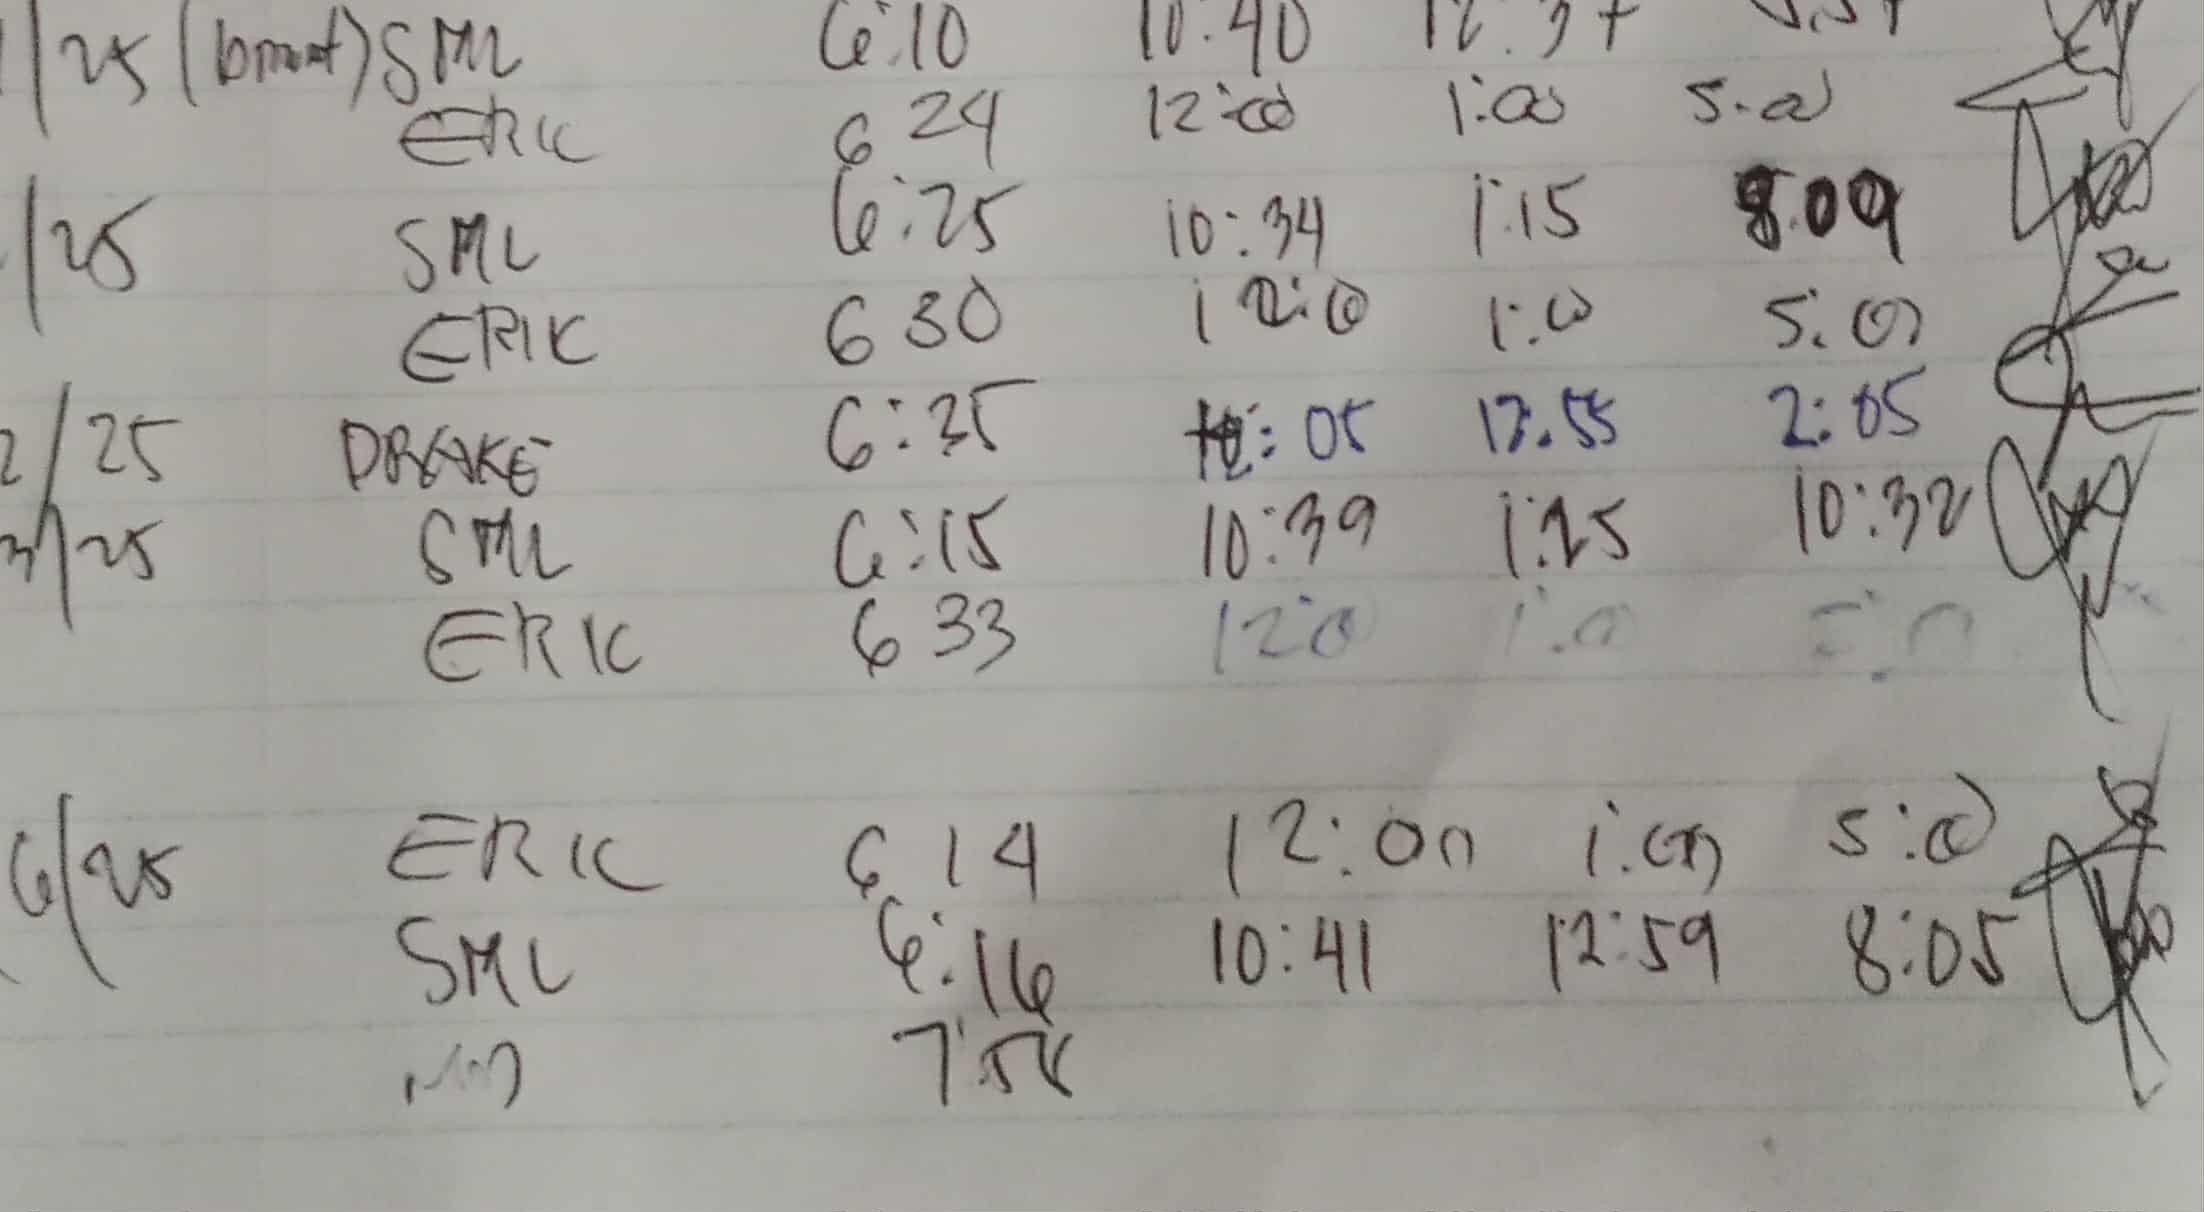 /25 SML 6:10 10:40
ERIC 6 24 12:00 1:00 5:00
/25 SML 6:25 10:34 1:15 8:09
ERIC 6 30 12:00 1:00 5:00
2/25 DRAKE 6:35 :05 2:05
3/25 SML 6:15 10:39 1:25 10:32
ERIC 6 33 12:0 1:0
6/25 ERIC 6 14 12:00 1:00 5:00
SML 6:16 10:41 12:59 8:05